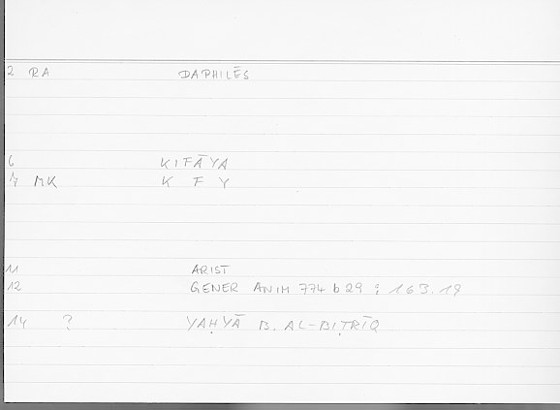 2 RA DAPHILĒS
6 KIFĀYA
7 MK K F Y
11 ARIST
12 GENER ANIM 774 b 29 ; 163.19
14 ? YAḤYĀ B. AL-BIṬRĪQ